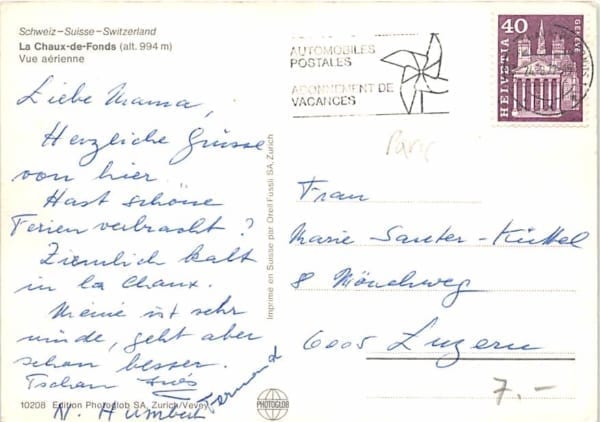 Schweiz–Suisse–Switzerland
La Chaux-de-Fonds (alt. 994 m)
Vue aérienne
Liebe Mama,
Herzliche Grüsse
von hier.
Hast schöne
Ferien verbracht ?
Ziemlich kalt
in la Chaux.
Meine ist sehr
müde, geht aber
schon besser.
Tschau Inès
N. Humbert
10208 Edition Photoglob SA, Zurich/Vevey
Imprimé en Suisse par Orell Füssli SA, Zurich
PHOTOGLOB
AUTOMOBILES
POSTALES
ABONNEMENT DE
VACANCES
40
HELVETIA
GENÈVE
Frau
Marie Sauter-Küttel
8 Mönchweg
6005 Luzern
7.-